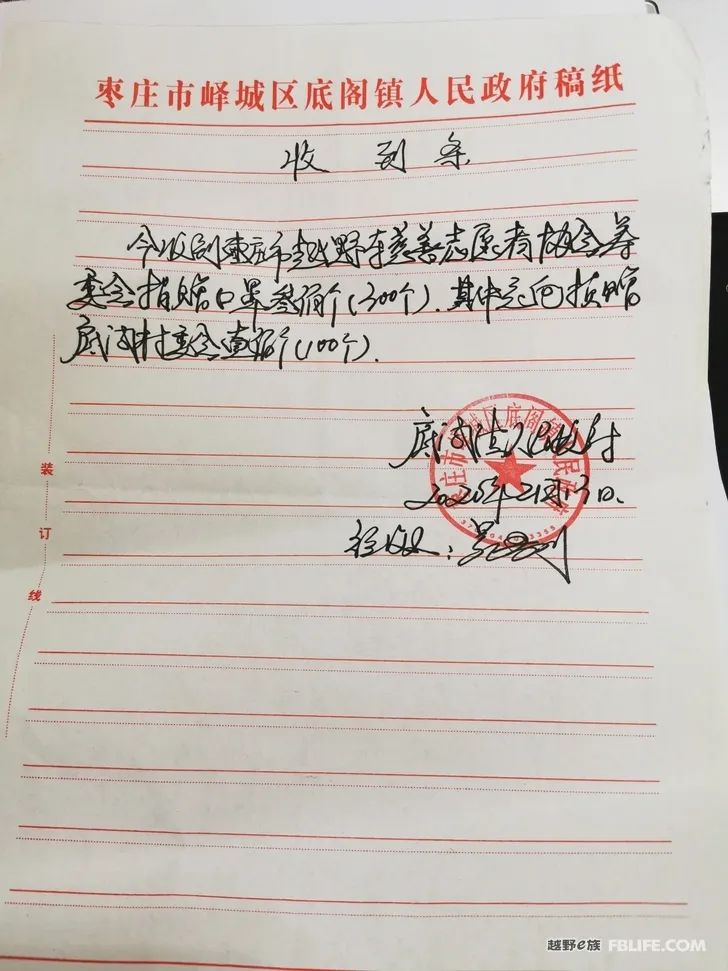 枣庄市峄城区底阁镇人民政府稿纸
收到条
今收到枣庄市越野车慈善志愿者协会筹
委会捐赠口罩叁佰个(300个).其中定向捐赠
底阁村委会壹佰个(100个).
底阁镇人民政府
2020年2月13日.
经办人:
装订线
越野e族 FBLIFE.COM